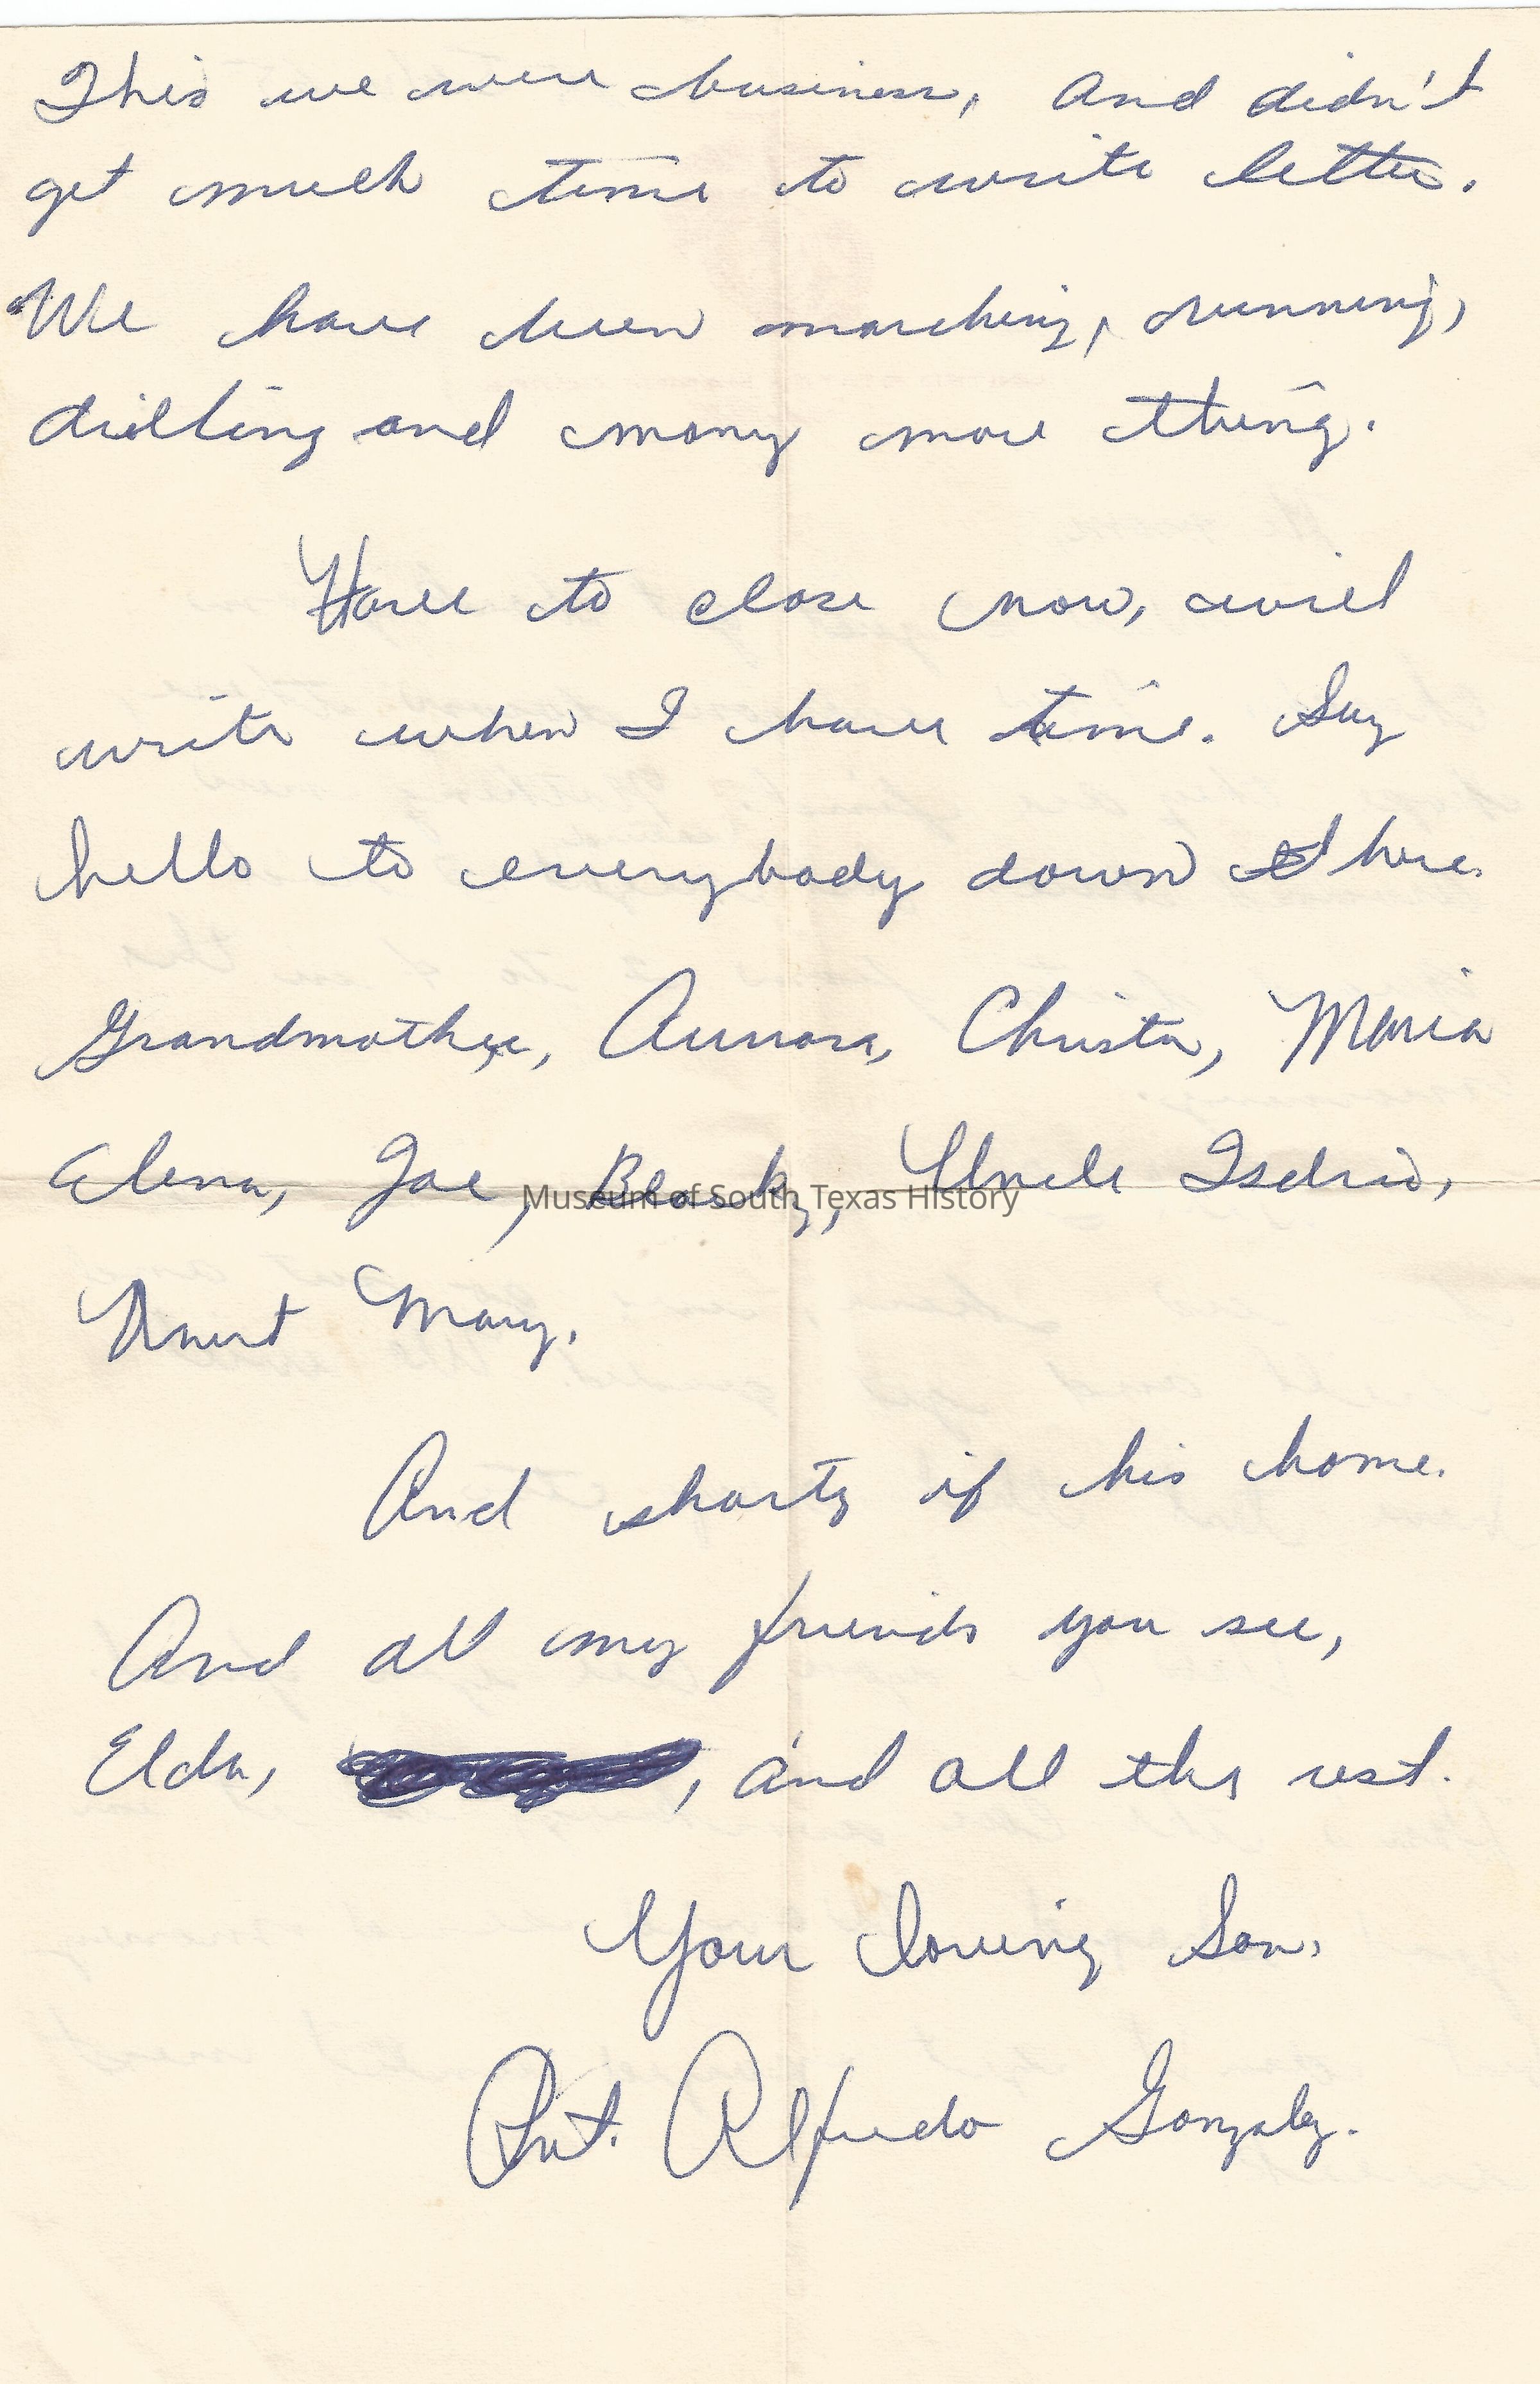 This we were business, and didn't
get much time to write letter.
We have been marching, running,
drilling and many more thing.
Have to close now, will
write when I have time. Say
hello to everybody down there.
Grandmother, Aurora, Christa, Maria
Elena, Joe, Blacky, Uncle Isdrio,
Museum of South Texas History
Anut Mary.
And shorty if his home.
And all my friends you see,
Elda, , and all the rest.
Your loving Son,
Pvt. Alfredo Gonzalez.